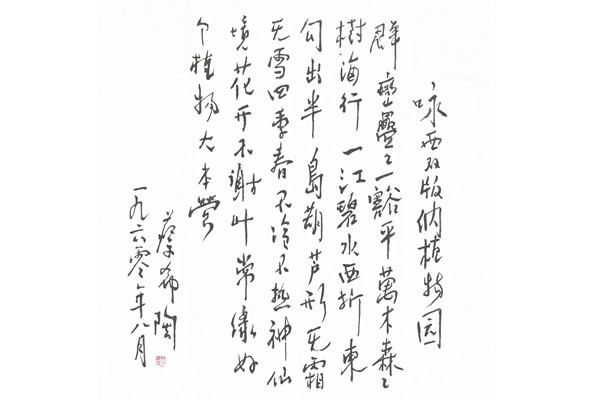 咏西双版纳植物园
群峦叠叠一豁平萬木森々
樹海行一江碧水西折東
勾出半島葫芦形无霜
无雪四季春不冷不热神仙
境花开不謝叶常绿好
个植物大本营
蔡希陶
一九六零年八月